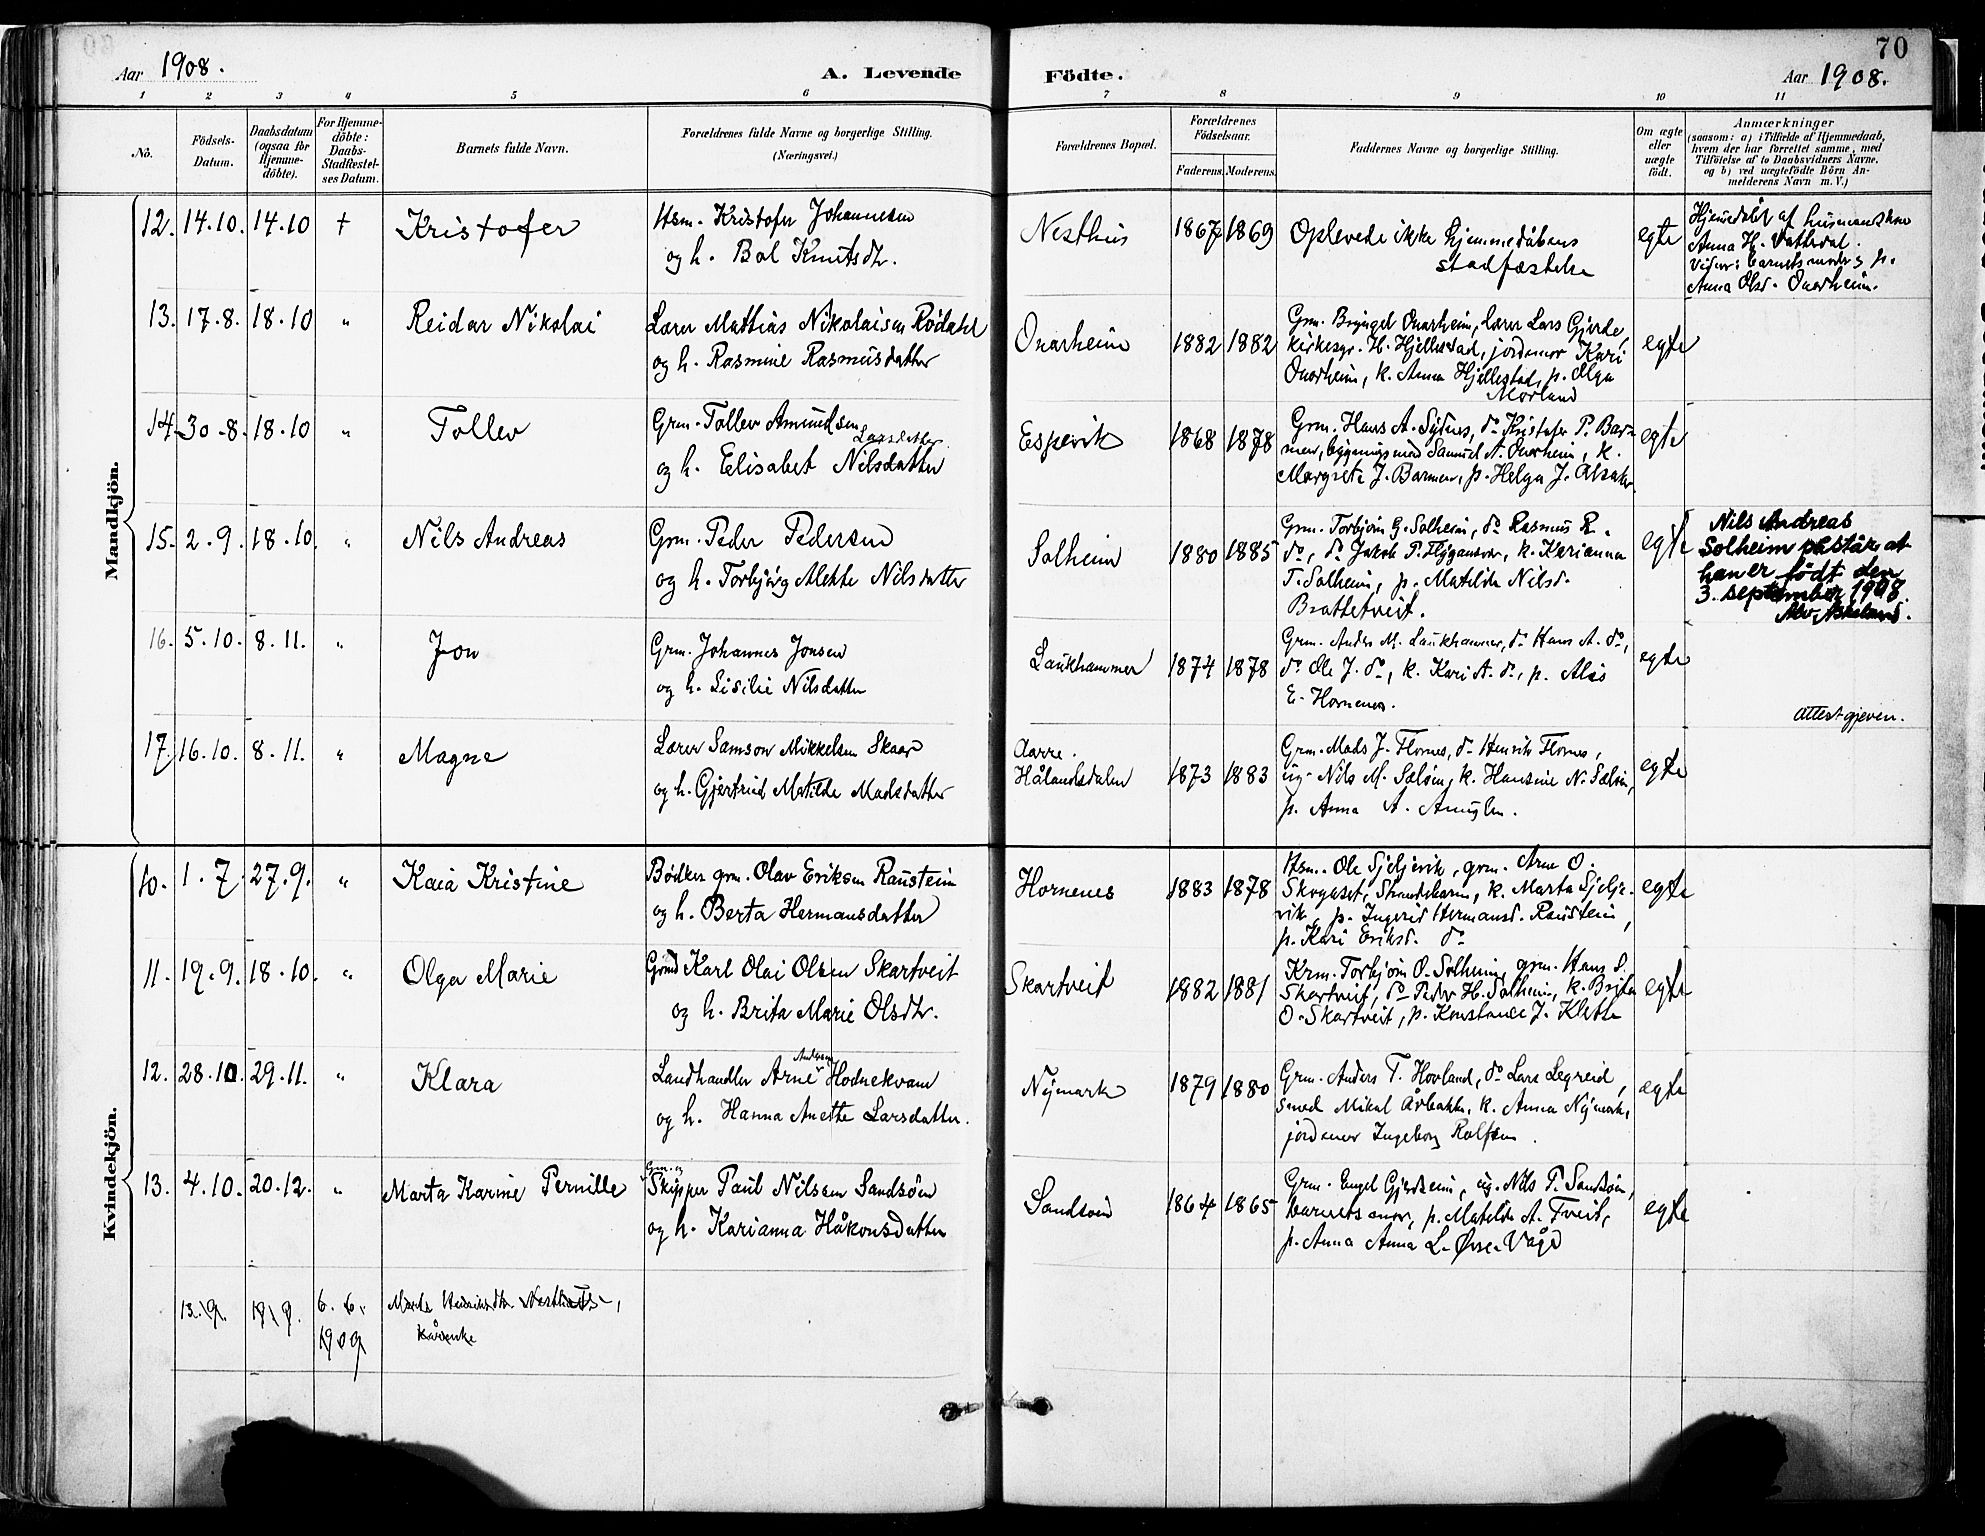 70
Aar 1908.
A. Levende
Födte.
Aar 1908.
1 2 3 4 5 6 7 8 9 10 11
No.
Födsels-
Datum.
Daabsdatum
(ogsaa for
Hjemme-
döbte).
For Hjemme-
döbte:
Daabs-
Stadfæstel-
ses Datum.
Barnets fulde Navn.
Forældrenes fulde Navne og borgerlige Stilling.
(Næringsvei.)
Forældrenes Bopæl.
Forældrenes
Födselsaar.
Faderens. Moderens.
Faddernes Navne og borgerlige Stilling.
Om ægte
eller
uægte
födt.
Anmærkninger
(saasom: a) i Tilfælde af Hjemmedaab,
hvem der har forrettet samme, med
Tilföielse af to Daabsvidners Navne,
og b) ved uægtefödte Börn An-
melderens Navn m. V.)
Mandkjön.
12. 14.10. 14.10 † Kristofer
Hsm. Kristofer Johannesen
og h. Bol Knutsdtr.
Nesthus 1867 1869
Oplevede ikke hjemmedåbens
stadfæstelse
egte
Hjemedøbt af husmandskone
Anna H. Vattedal.
Vidner: barnets moder og p.
Anna Olsd. Onarheim.
13. 17.8. 18.10 " Reidar Nikolai
Lærer Mattias Nikolaisen Rödahl
og h. Rasmine Rasmusdatter
Onarheim 1882 1882
Grm. Brynjel Onarheim, lærer Lars Gjerde,
kirkesgr. H. Hjellestad, jordemor Kari
Onarheim, k. Anna Hjellestad, p. Olga
Morland
egte
14. 30.8. 18.10 " Tollev
Grm. Tollev Amundsen
Larsdatter
og h. Elisabet Nilsdatter
Espevik 1868 1878
Grm. Hans A. Sydnes, do Kristofer P. Bar-
men, bygningsmand Samuel A. Onarheim, k.
Margrete J. Barmen, p. Helga J. Alsaker
egte
15. 2.9. 18.10. " Nils Andreas
Grm. Peder Pedersen
og h. Torbjörg Alette Nilsdatter
Solheim 1880 1885
Grm. Torbjørn G. Solheim, do Rasmus R.
do, do Jakob P. Flygansvær, k. Karianna
T. Solheim, p. Matilda Nilsd.
Brattetveit.
egte
Nils Andreas
Solheim påstår at
han er født den
3. september 1908.
16. 5.10. 8.11. " Jon
Grm. Johannes Jonsen
og h. Lisilie Nilsdatter
Laukhammer 1874 1878
Grm. Anders M. Laukhammer, do Hans A. do,
do Ole J. do, k. Kari A. do, p. Alis
E. Hornenes.
egte
Attest gjeven.
17. 16.10. 8.11. " Magne
Lærer Samson Mikkelsen Skaar
og h. Gjertrud Matilde Madsdatter
Aarre.
Hålandsdalen 1873 1883
Grm. Mads J. Flornes, do Henrik Flornes,
ug. Nils M. Sælen, k. Hansine N. Sælen,
p. Anna A. Amuglen.
egte
Kvindekjön.
10. 1.7 27.9. " Kaia Kristine
Bödker grm. Olav Eriksen Raustein
og h. Berta Hermansdatter
Hornenes 1883 1878
Hsm. Ole Sjeljevik, grm. Arne O.
Skogaset, Strandebarm, k. Marta Sjelje-
vik, p. Ingerid Hermansd. Raustein,
p. Kari Eriksd. do
egte
11. 19.9. 18.10. " Olga Marie
Grmd Karl Olai Olsen Skartveit
og h. Brita Marie Olsdtr.
Skartveit 1882 1881
Krm. Torbjørn O. Solheim, grm. Hans S.
Skartveit, do Peder H. Solheim, k. Brita
O. Skartveit, p. Konstanse J. Klette
egte
12. 28.10. 29.11. " Klara
Andersen
Landhandler Arne Hodnekvam
og h. Hanna Anette Larsdatter.
Nymark 1879 1880
Grm. Anders T. Hovland, do Lars Legreid,
smed Mikal Årbakke, k. Anna Nymark,
jordemor Ingeborg Rolfsen.
egte
13. 4.10. 20.12. " Marta Karine Pernille
Grm. og
Skipper Paul Nilsen Sandsöen
og h. Karianna Håkonsdatter
Sandsöen 1864 1865
Grm. Engel Gjerdseim, ug. Nils P. Sandsöen,
barnets mor, p. Matilda A. Tveit,
p. Anna Anna L. Øvre-Våge
egte
13.9. 19.9. 6.6.
1909